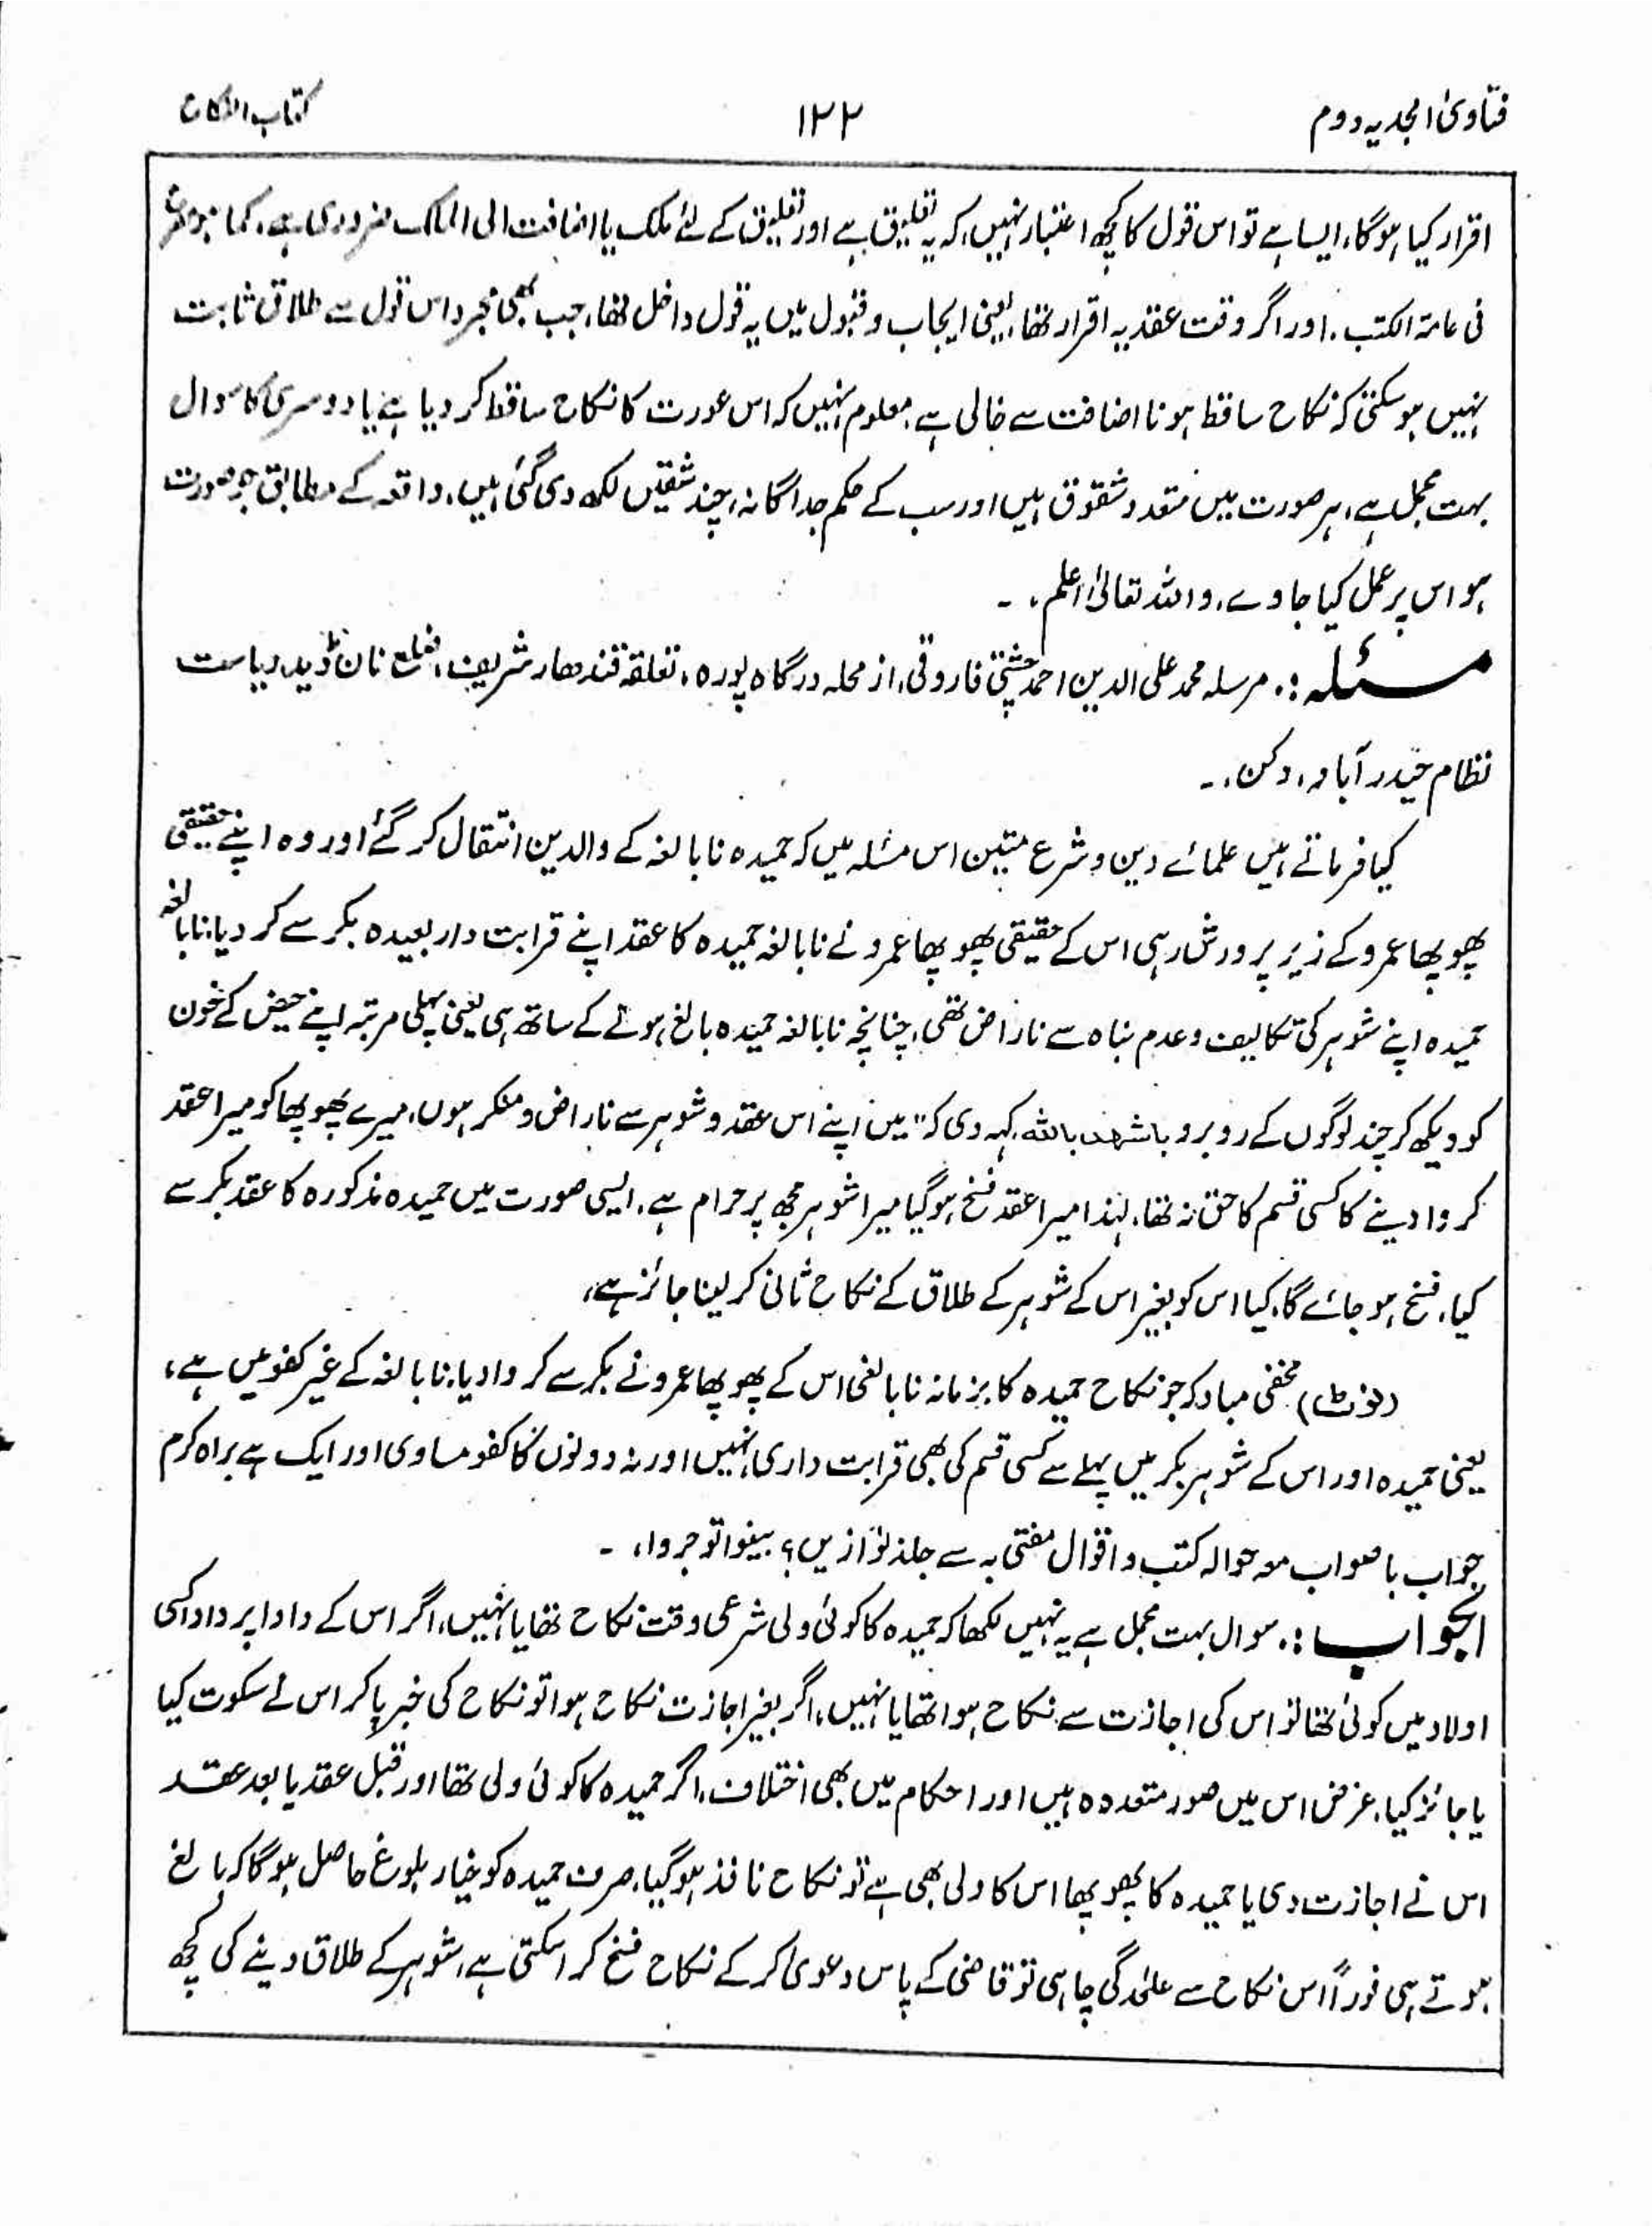 فتاویٰ امجدیہ دوم
۱۲۲
کتاب النکاح
اقرار کیا ہوگا، ایسا ہے تو اس قول کا کچھ اعتبار نہیں، کہ یہ تعلیق ہے اور تعلیق کے لئے ملک یا اضافت الی الملک ضروری ہے، کما ہو
فی عامۃ الکتب. اور اگر وقت عقد یہ اقرار تھا، یعنی ایجاب و قبول میں یہ قول داخل تھا، جب بھی مجرد اس قول سے طلاق ثابت
نہیں ہو سکتی کہ نکاح ساقط ہونا اضافت سے خالی ہے، معلوم نہیں کہ اس عورت کا نکاح ساقط کر دیا ہے یا دوسری کا سوال
بہت مجمل ہے، ہر صورت میں متعدد شقوق ہیں اور سب کے حکم جداگانہ، چند شقیں لکھ دی گئی ہیں، واقعہ کے مطابق جو صورت
ہو اس پر عمل کیا جاوے، واللہ تعالیٰ اعلم۔
مسئلہ :۔ مرسلہ محمد علی الدین احمد چشتی فاروقی، از محلہ درگاہ پورہ، تعلقہ قندھار شریف، ضلع نان ڈیڈ، ریاست
نظام حیدر آباد، دکن،۔
کیا فرماتے ہیں علمائے دین و شرع متین اس مسئلہ میں کہ حمیدہ نابالغہ کے والدین انتقال کر گئے اور وہ اپنے حقیقی
پھوپھا عمرو کے زیر پرورش رہی اس کے حقیقی پھوپھا عمرو نے نابالغہ حمیدہ کا عقد اپنے قرابت دار بعیدہ بکر سے کر دیا، نابالغہ
حمیدہ اپنے شوہر کی تکالیف و عدم نباہ سے ناراض تھی، چنانچہ نابالغہ حمیدہ بالغ ہونے کے ساتھ ہی یعنی پہلی مرتبہ اپنے حیض کے خون
کو دیکھ کر چند لوگوں کے روبرو باشہد باللہ کہہ دی کہ "میں اپنے اس عقد و شوہر سے ناراض و منکر ہوں، میرے پھوپھا کو میرا عقد
کر وا دینے کا کسی قسم کا حق نہ تھا، لہٰذا میرا عقد فسخ ہو گیا میرا شوہر مجھ پر حرام ہے، ایسی صورت میں حمیدہ مذکورہ کا عقد بکر سے
کیا، فسخ ہو جائے گا، کیا اس کو بغیر اس کے شوہر کے طلاق کے نکاح ثانی کر لینا جائز ہے،
(نوٹ) مخفی مباد کہ جو نکاح حمیدہ کا بزمانہ نابالغی اس کے پھوپھا عمرو نے بکر سے کر وا دیا، نابالغہ کے غیر کفو میں ہے،
یعنی حمیدہ اور اس کے شوہر بکر میں پہلے سے کسی قسم کی بھی قرابت داری نہیں اور نہ دونوں کا کفو مساوی اور ایک ہے براہ کرم
جواب با صواب مع حوالہ کتب و اقوال مفتی بہ سے جلد نوازیں؟ بینوا توجروا،۔
الجواب :۔ سوال بہت مجمل ہے یہ نہیں لکھا کہ حمیدہ کا کوئی ولی شرعی وقت نکاح تھا یا نہیں، اگر اس کے دادا پردادا کی
اولاد میں کوئی تھا تو اس کی اجازت سے نکاح ہوا تھا یا نہیں، اگر بغیر اجازت نکاح ہوا تو نکاح کی خبر پا کر اس نے سکوت کیا
یا جائز کیا، غرض اس میں صور متعددہ ہیں اور احکام میں بھی اختلاف، اگر حمیدہ کا کوئی ولی تھا اور قبل عقد یا بعد عقد
اس نے اجازت دی یا حمیدہ کا پھوپھا اس کا ولی بھی ہے تو نکاح نافذ ہو گیا، صرف حمیدہ کو خیار بلوغ حاصل ہوگا کہ بالغ
ہوتے ہی فوراً اس نکاح سے علیٰحدگی چاہی تو قاضی کے پاس دعویٰ کر کے نکاح فسخ کرا سکتی ہے، شوہر کے طلاق دینے کی کچھ